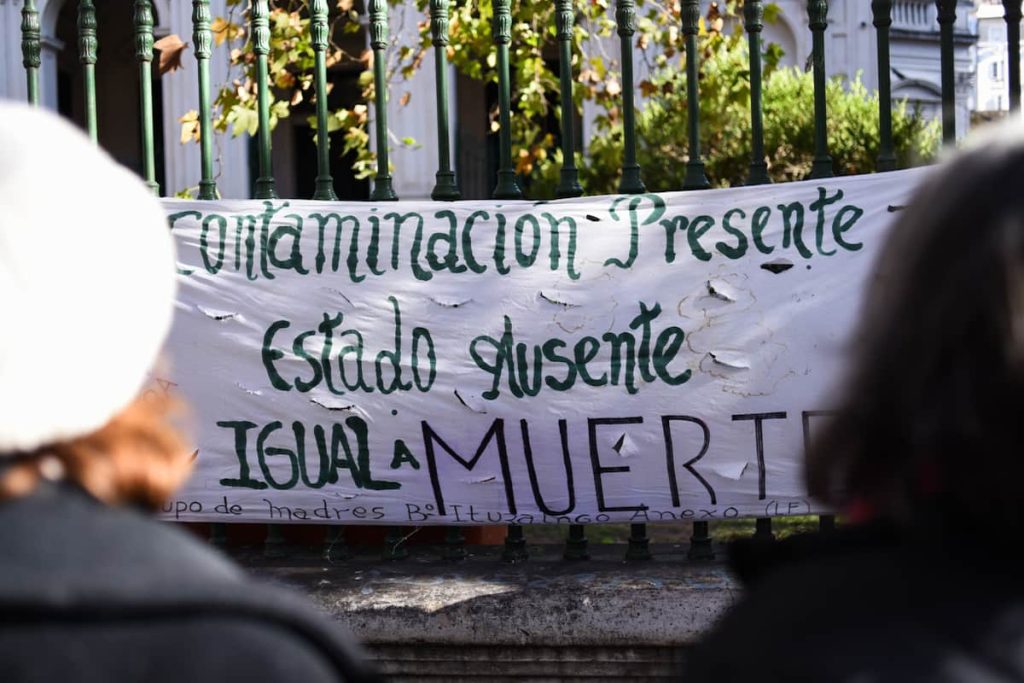 Contaminación Presente
Estado Ausente
IGUAL A MUERTE
upo de Madres Bº Ituzaingo Anexo (LF)